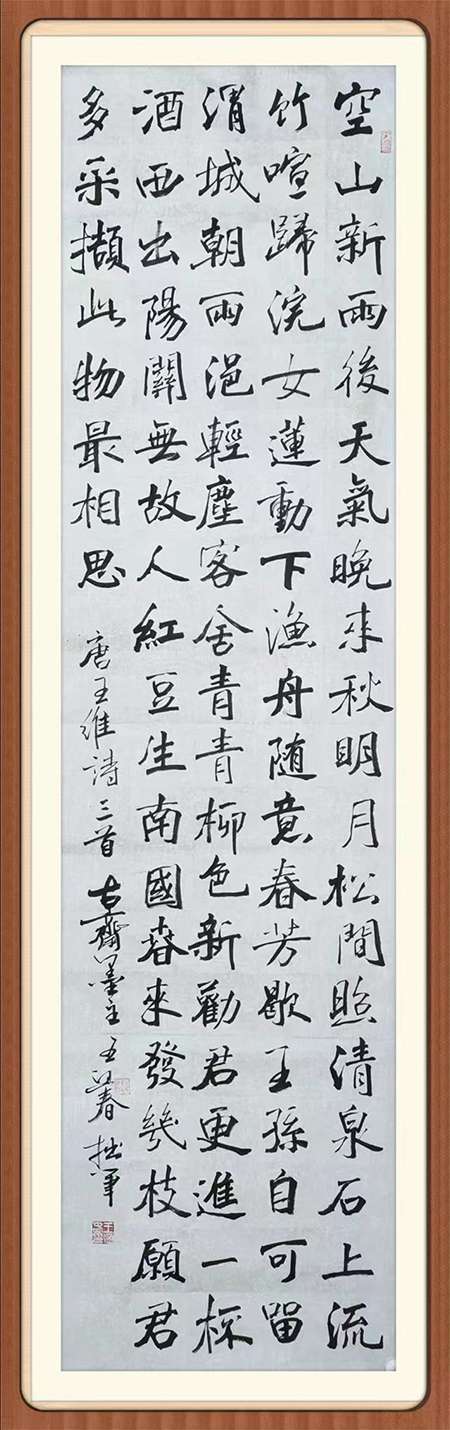 空山新雨後天氣晚来秋明月松間照清泉石上流
竹喧歸浣女蓮動下漁舟随意春芳歇王孫自可留
渭城朝雨浥輕塵客舍青青柳色新勸君更進一杯
酒西出陽關無故人紅豆生南國春来發幾枝願君
多采擷此物最相思 唐王維詩三首 古齋墨主 王春 拙筆